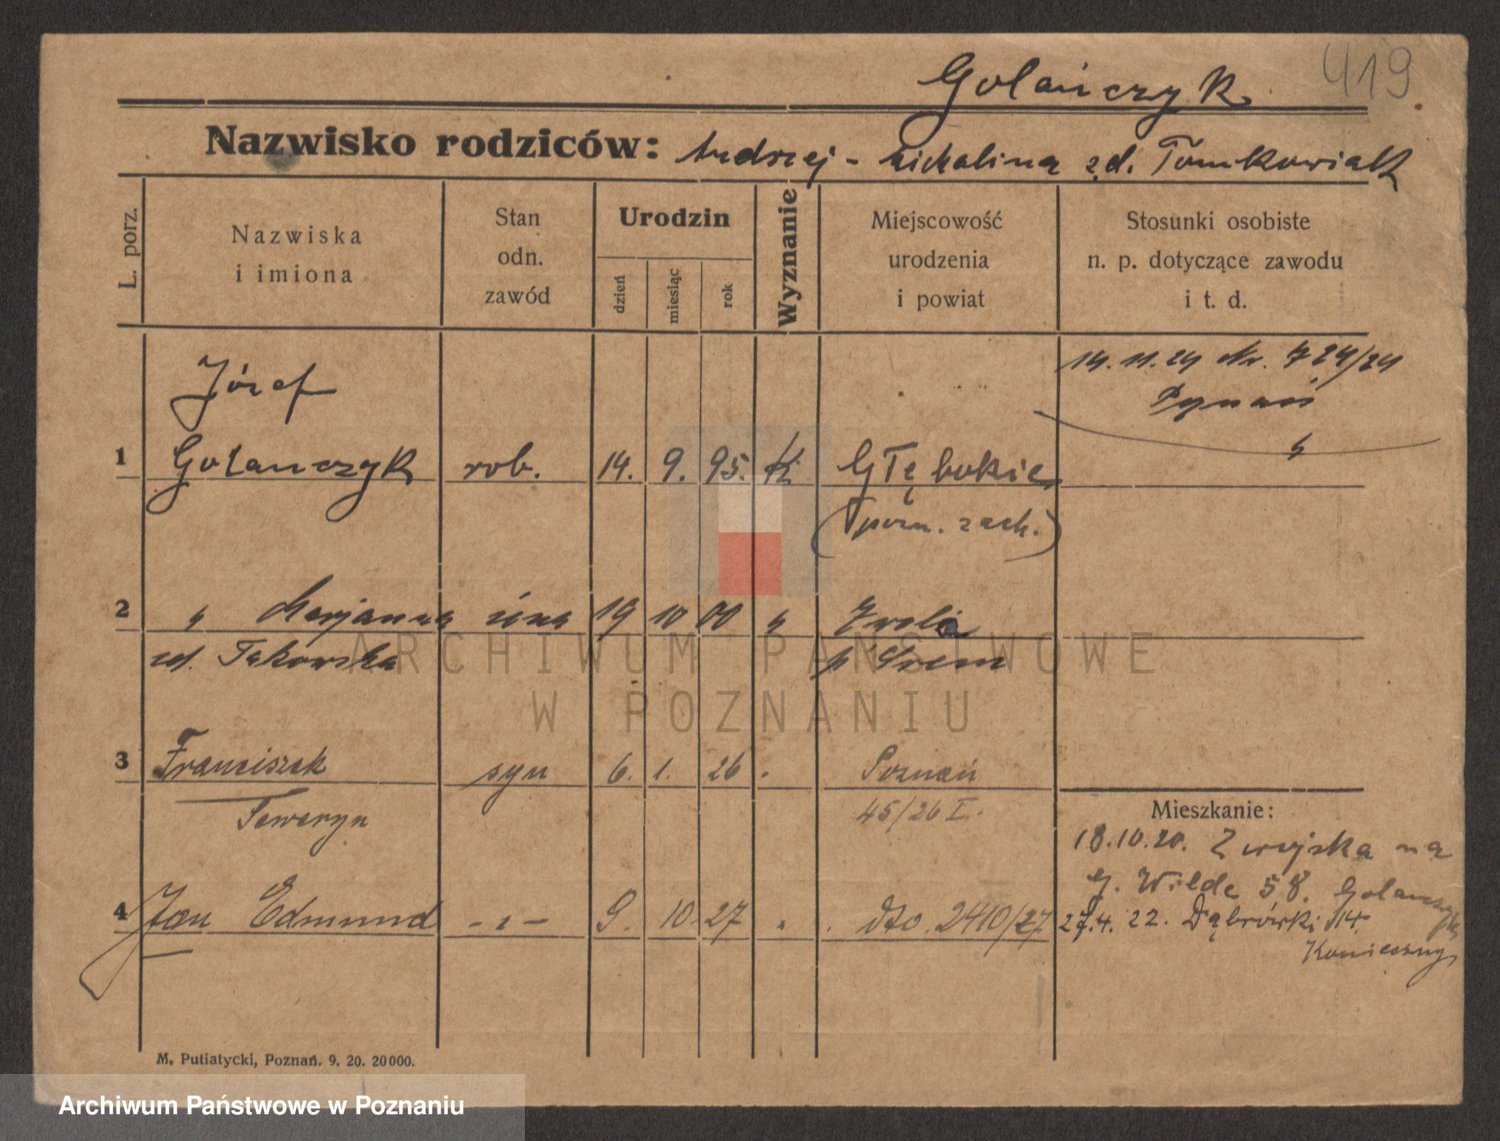 419
Golańczyk
Nazwisko rodziców: Andrzej - Michalina zd. Tomkowiak
L. porz.
Nazwiska
i imiona
Stan
odn.
zawód
Urodzin
dzień
miesiąc
rok
Wyznanie
Miejscowość
urodzenia
i powiat
Stosunki osobiste
n. p. dotyczące zawodu
i t. d.
14.11.24 Nr. 724/24
Poznań
Józef
1 Golańczyk rob. 14. 9. 95. K Głębokie
(pozn. zach.)
2 " Marjanna żona 19 10 00 " Zwola
zd. Takowska p. Śrem
3 Franciszek syn 6. 1. 26 . Poznań
Seweryn 45/26 I.
4 Jan Edmund -"- 9. 10 27 " dto. 2410/27
Mieszkanie:
18.10.20. Z wojska na
G. Wilde 58. Golańczyk
27.4.22. Dąbrówki 14.
Konieczny
M. Putiatycki, Poznań. 9. 20. 20000.
ARCHIWUM PAŃSTWOWE
W POZNANIU
Archiwum Państwowe w Poznaniu